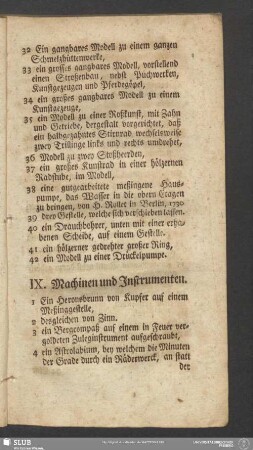 32 Ein gangbares Modell zu einem ganzen
Schmelzhüttenwerke,
33 ein grosses gangbares Modell, vorstellend
einen Stroßenbau, nebst Puchwerken,
Kunstgezeugen und Pferdegöpel,
34 ein großes gangbares Modell zu einem
Kunstgezeuge,
35 ein Modell zu einer Roßkunst, mit Zahn
und Getriebe, dergestalt vorgerichtet, daß
ein halbgezahntes Stirnrad wechselsweise
zwey Drillinge links und rechts umdrehet,
36 Modell zu zwey Stoßheerden,
37 ein großes Kunstrad in einer hölzernen
Radstube, im Modell,
38 eine gutgearbeitete messingene Haus-
pumpe, das Wasser in die obern Etagen
zu bringen, von H. Mollet in Berlin, 1790.
39 drey Gestelle, welche sich verschieben lassen.
40 ein Drauchbohrer, unten mit einer erha-
benen Scheide, auf einem Gestelle.
41 ein hölzerner gedrehter großer Ring,
42 ein Modell zu einer Drückelpumpe.
IX. Machinen und Instrumenten.
1 Ein Heronsbrunn von Kupfer auf einem
Meßinggestelle,
2 desgleichen von Zinn.
3 ein Bergcompaß auf einem in Feuer ver-
goldeten Zuleginstrument aufgeschraubt,
4 ein Astrolabium, bey welchem die Minuten
der Grade durch ein Räderwerck, an statt
der
SLUB